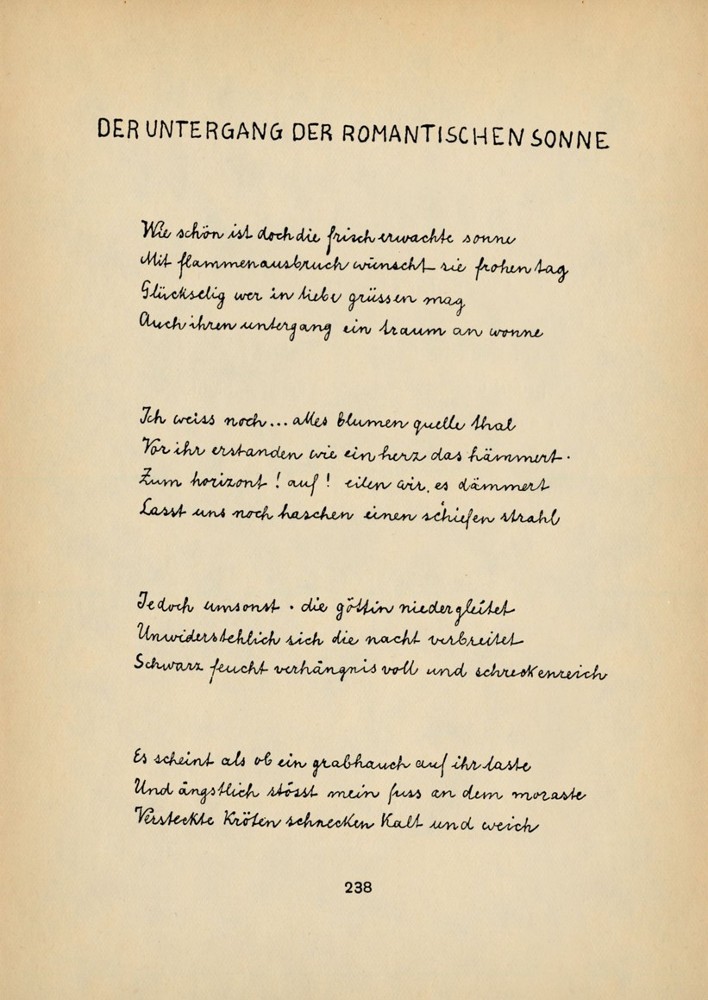 DER UNTERGANG DER ROMANTISCHEN SONNE
Wie schön ist doch die frisch erwachte sonne
Mit flammenausbruch wünscht sie frohen tag
Glückselig wer in liebe grüssen mag
Auch ihren untergang ein traum an wonne
Ich weiss noch... alles blumen quelle thal
Vor ihr erstanden wie ein herz das hämmert.
Zum horizont! auf! eilen wir, es dämmert
Lasst uns noch haschen einen schiefen strahl
Jedoch umsonst. die göttin niedergleitet
Unwiderstehlich sich die nacht verbreitet
Schwarz feucht verhängnisvoll und schreckenreich
Es scheint als ob ein grabhauch auf ihr laste
Und ängstlich stösst mein fuss an dem moraste
Versteckte Kröten schnecken kalt und weich
238